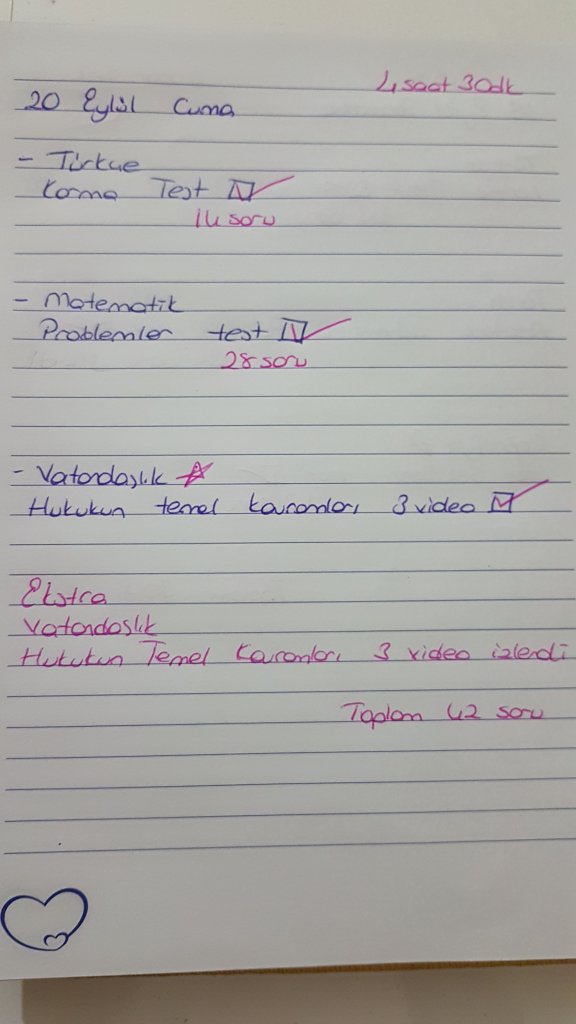 4 saat 30dk
20 Eylül Cuma
- Türkçe
Karma Test
14 soru
- Matematik
Problemler test
28 soru
- Vatandaşlık
Hukukun temel kavramları 3 video
Ekstra
Vatandaşlık
Hukukun Temel Kavramları 3 video izlendi
Toplam 42 soru